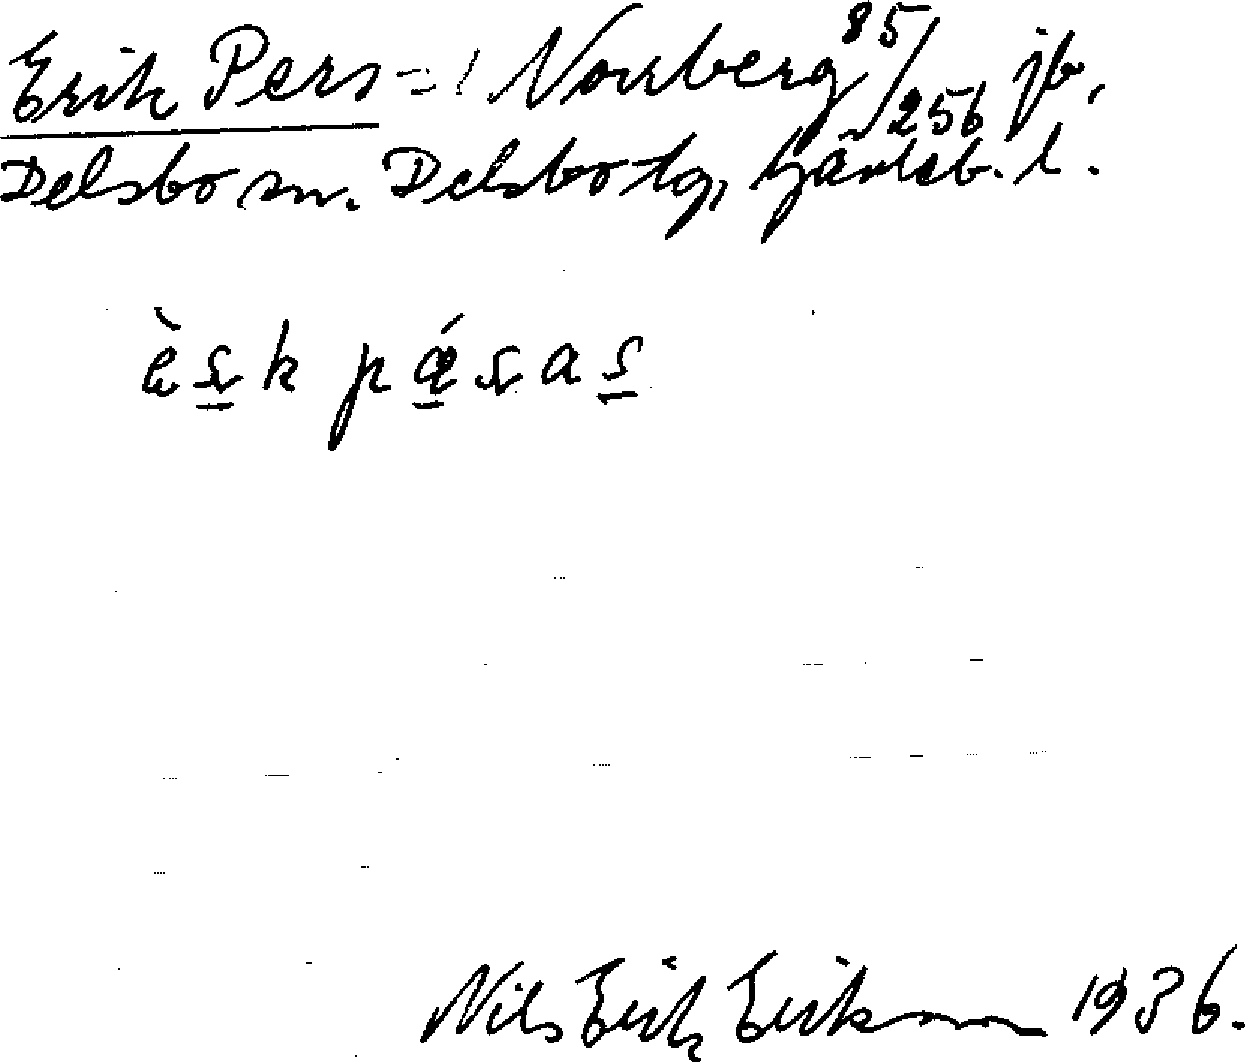 Erik Pers = / Norrberg 85/256 jb,
Delsbo sn. Delsbo tg, Gävleb. l.
Nils Erik Erikson 1936.